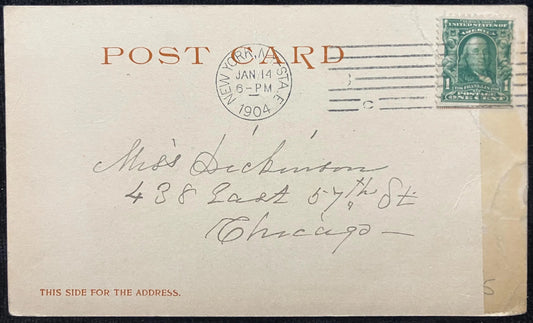 POST CARD
NEW YORK, N.Y. STA. E
JAN 14
6-PM
1904
UNITED STATES OF
AMERICA
1 1
POSTAGE
ONE CENT
Miss Dickinson
438 East 57th St
Chicago
THIS SIDE FOR THE ADDRESS.